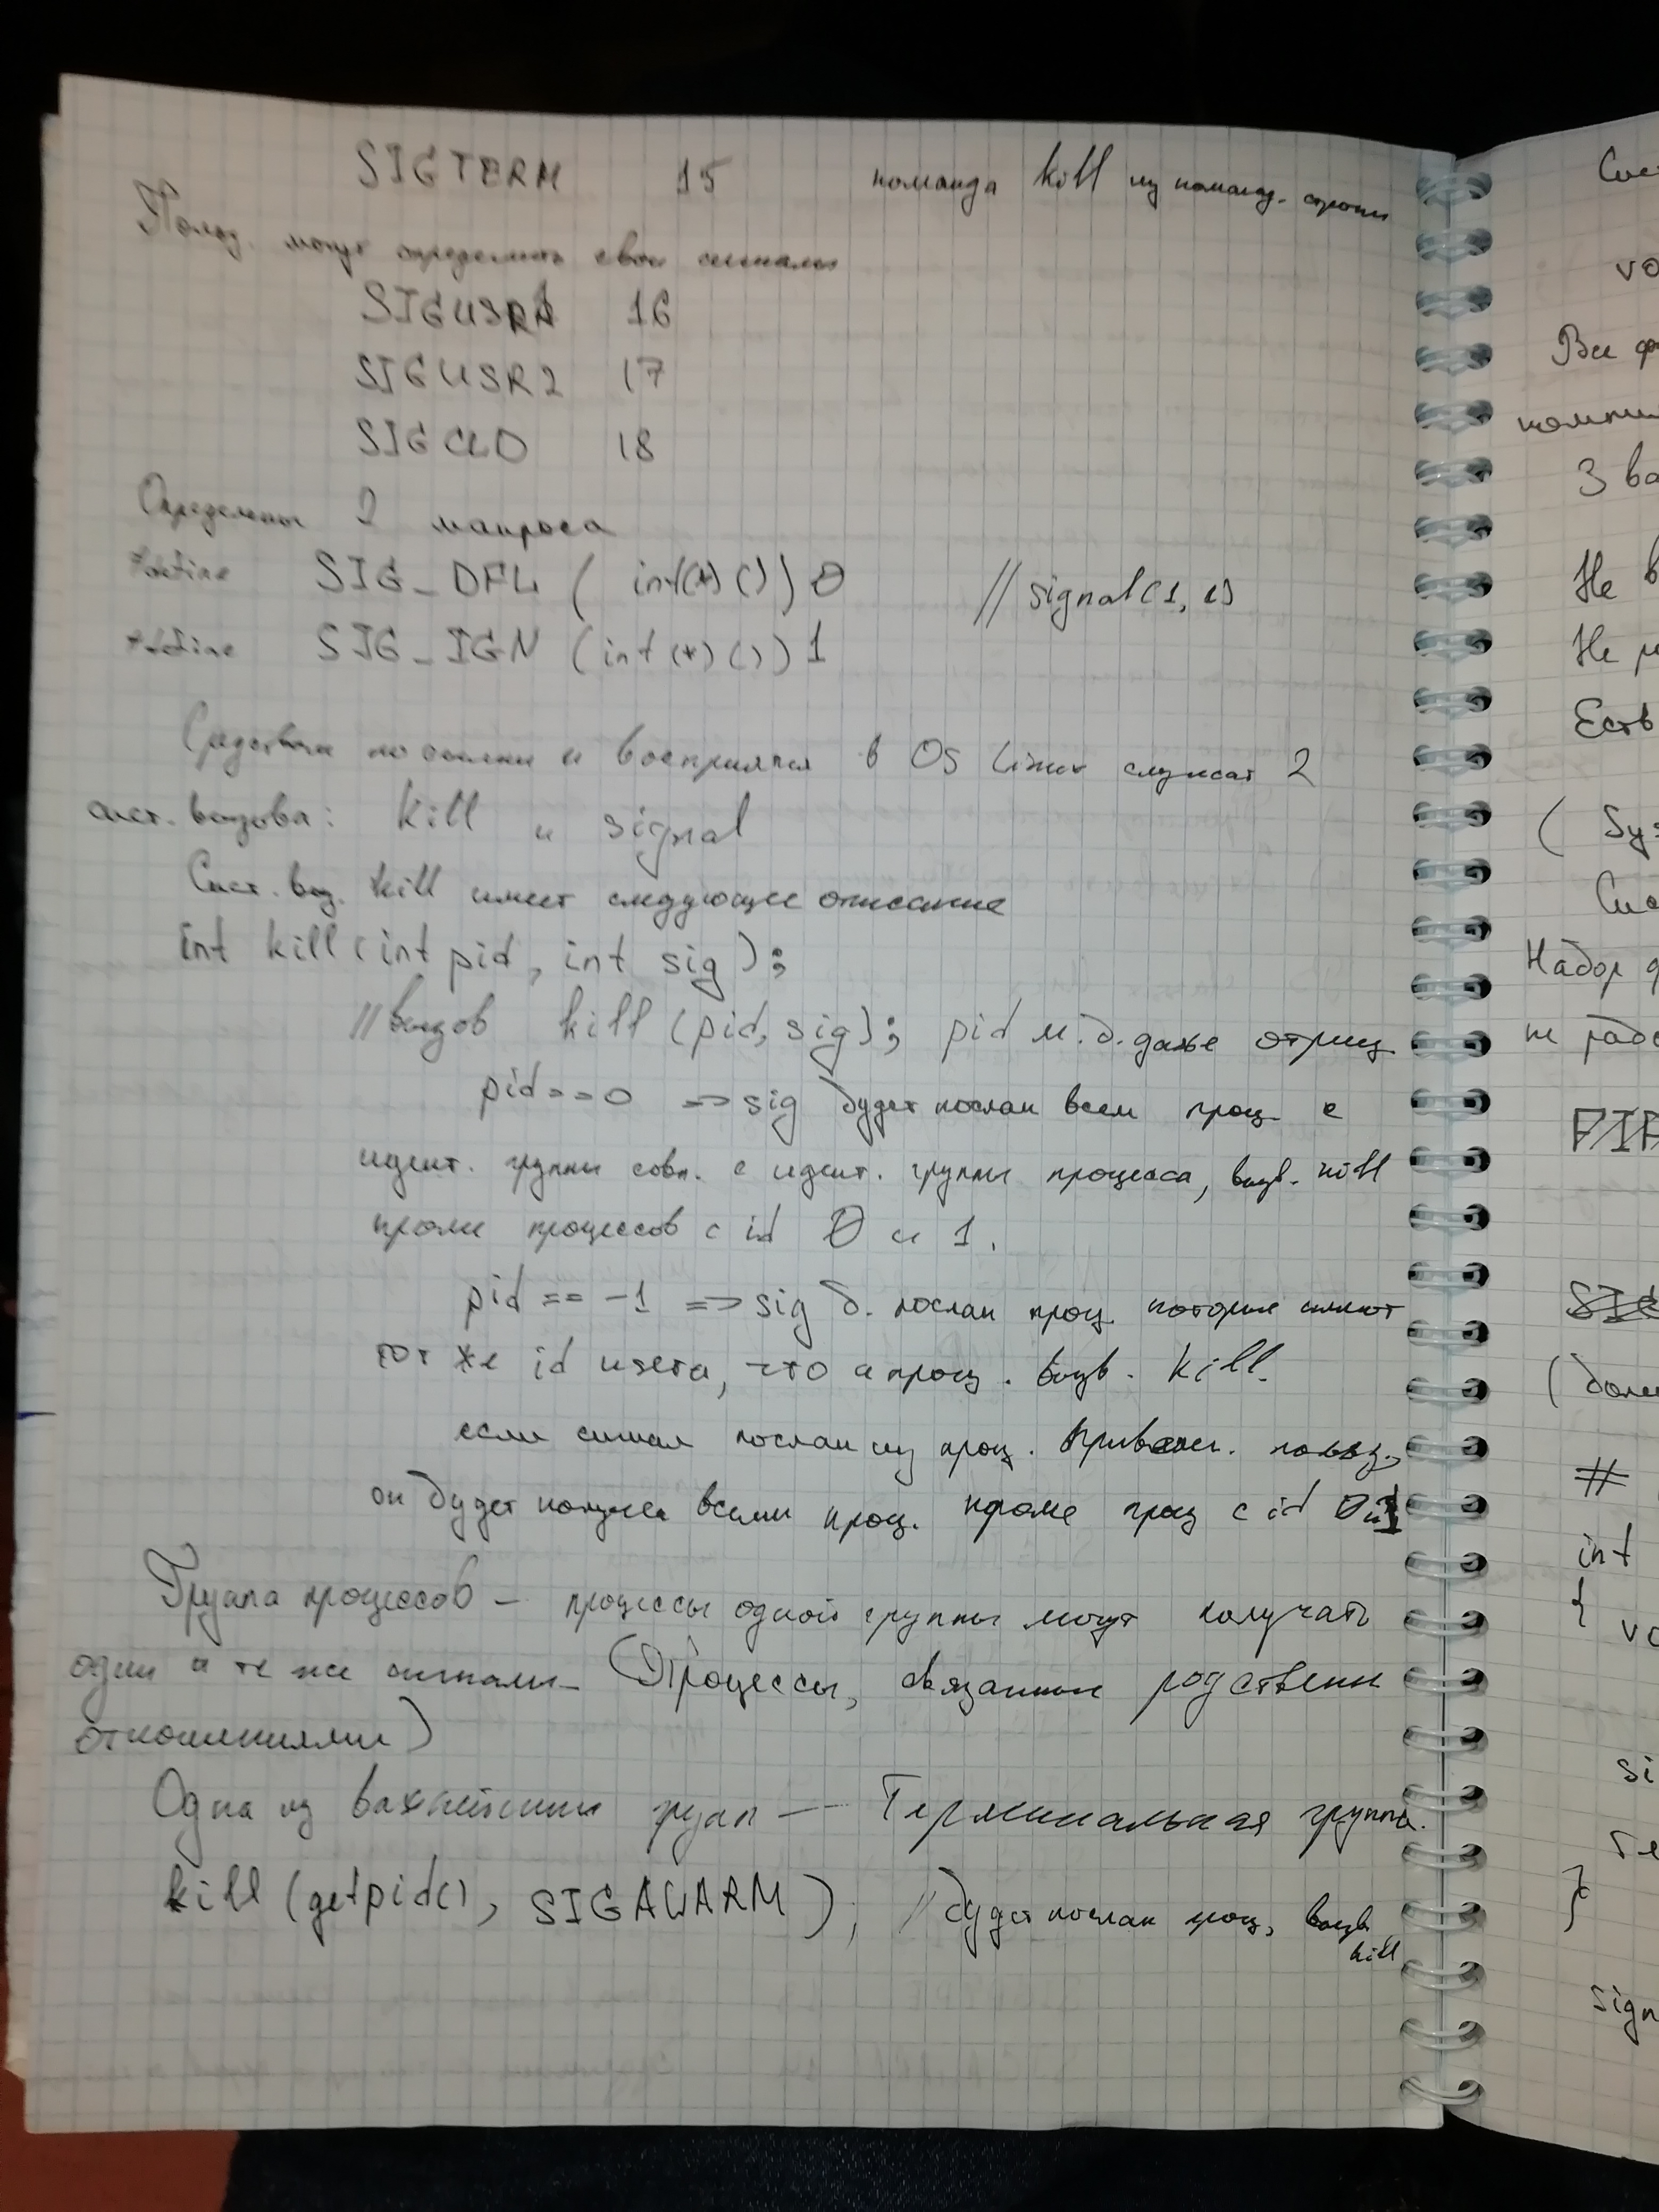 SIGTERM 15 команда kill из команд. строки
Польз. могут определить свои сигналы
SIGUSR1 16
SIGUSR2 17
SIGCLD 18
Определены 2 макроса
#define SIG_DFL ( int(*) ()) 0 // signal(1, 1)
#define SIG_IGN (int (*) ()) 1
Средствами посылки и восприятия в OS Linux служат 2
сист. вызова: kill и signal
Сист. выз. kill имеет следующее описание
int kill (int pid, int sig);
// вызов kill (pid, sig); pid м.б. даже отриц.
pid==0 => sig будет послан всем проц. с
идент. группы совп. с идент. группы процесса, вызв. kill
кроме процессов с id 0 и 1.
pid == -1 => sig б. послан проц. которые имеют
тот же id usera, что и проц. вызв. kill.
если сигнал послан из проц. привелег. польз.,
он будет получен всеми проц. кроме проц с id 0 и 1
Группа процессов – процессы одной группы могут получать
одни и те же сигналы (Процессы, связанные родственн
отношениями)
Одна из важнейших групп — Терминальная группа.
kill (getpid(), SIGALARM ); // будет послан проц, вызв
kill
Сис
vo
Все ф
компи
3 ва
Не в
Не р
Есть
( Sys
Сис
Набор
не рабо
PIP
SIG
(
#
int
{
vo
si
}
sign